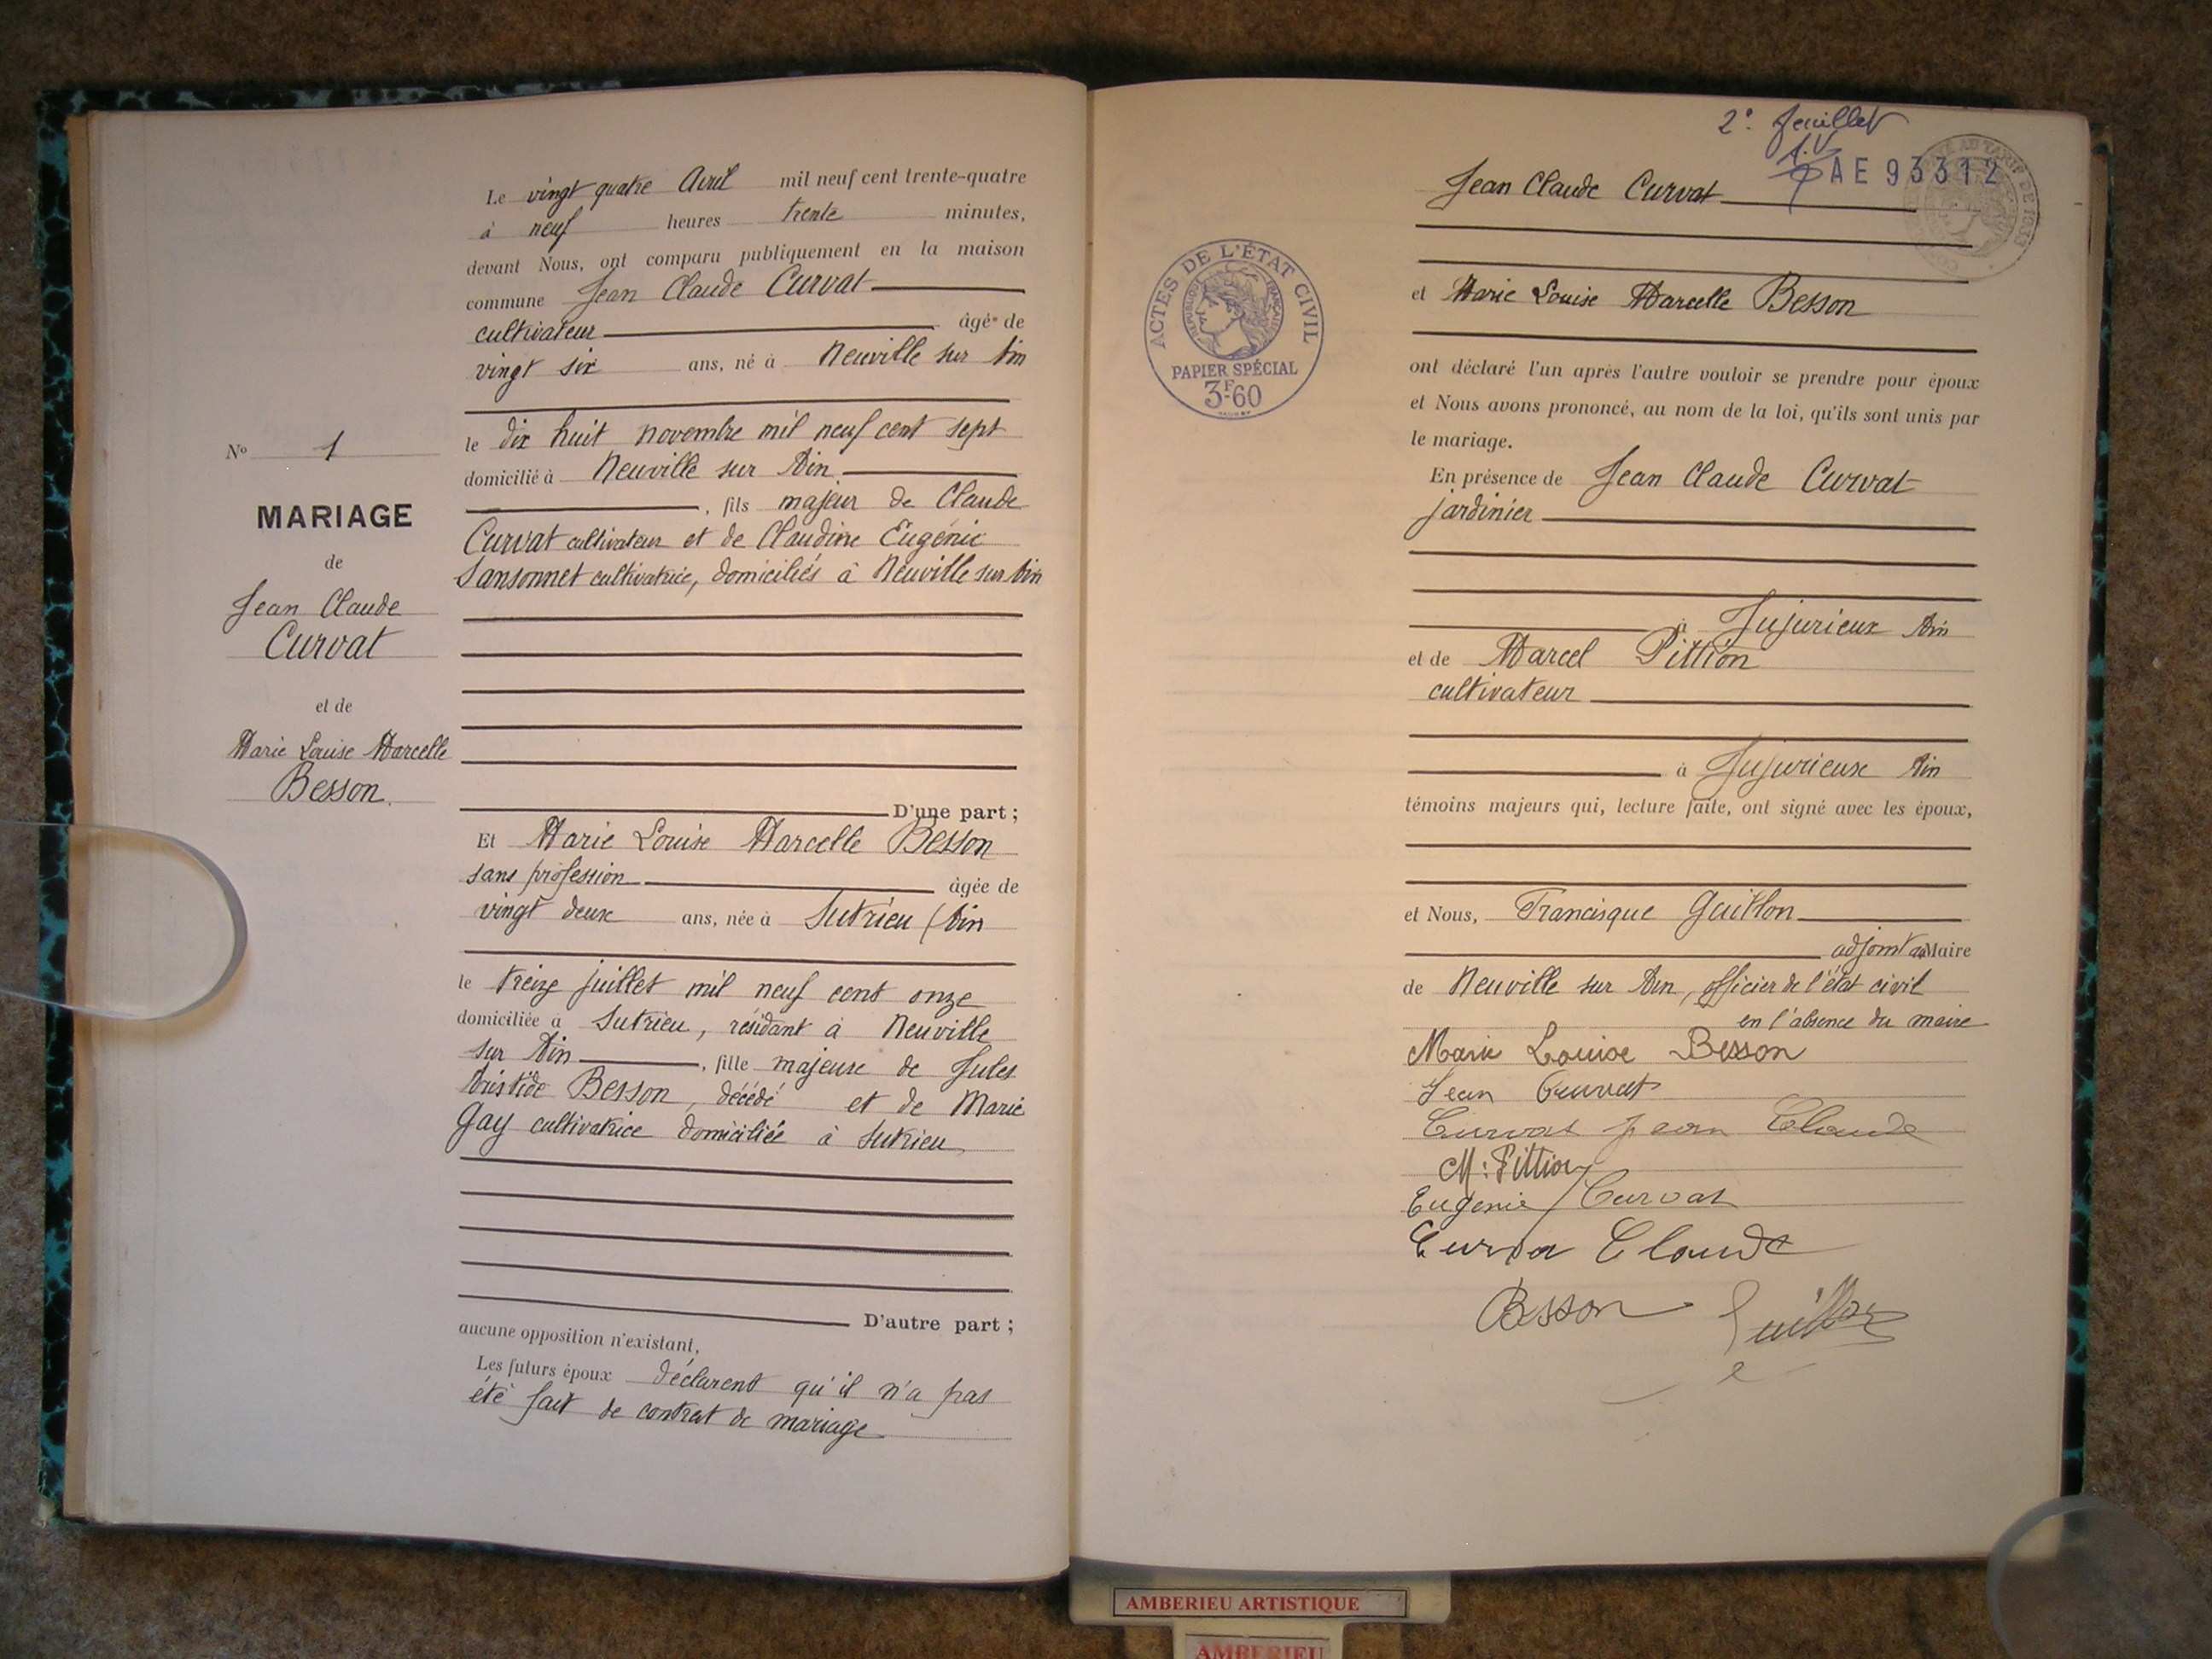 Le vingt quatre Avril mil neuf cent trente-quatre
à neuf heures trente minutes,
devant Nous, ont comparu publiquement en la maison
commune Jean Claude Curvat
cultivateur âgé de
vingt six ans, né à Neuville sur Ain
le dix huit novembre mil neuf cent sept
domicilié à Neuville sur Ain
, fils majeur de Claude
Curvat cultivateur et de Claudine Eugénie
Sansonnet cultivatrice, domiciliés à Neuville sur Ain
D'une part ;
No 1
MARIAGE
de
Jean Claude
Curvat
et de
Marie Louise Marcelle
Besson.
Et Marie Louise Marcelle Besson
sans profession âgée de
vingt deux ans, née à Sutrieu (Ain
le treize juillet mil neuf cent onze
domiciliée à Sutrieu, résidant à Neuville
sur Ain , fille majeure de Jules
Aristide Besson, décédé et de Marie
Gay cultivatrice domiciliée à Sutrieu
D'autre part ;
aucune opposition n'existant,
Les futurs époux déclarent qu'il n'a pas
été fait de contrat de mariage
2e feuillet
AE 93312
Jean Claude Curvat
ACTES DE L'ÉTAT CIVIL
RÉPUBLIQUE FRANÇAISE
PAPIER SPÉCIAL
3F60
et Marie Louise Marcelle Besson
ont déclaré l'un après l'autre vouloir se prendre pour époux
et Nous avons prononcé, au nom de la loi, qu'ils sont unis par
le mariage.
En présence de Jean Claude Curvat
jardinier
à Jujurieux Ain
et de Marcel Pittion
cultivateur
à Jujurieux Ain
témoins majeurs qui, lecture faite, ont signé avec les époux,
et Nous, Francisque Guillon
adjoint au Maire
de Neuville sur Ain, officier de l'état civil
en l'absence du maire
Marie Louise Besson
Jean Curvat
Curvat Jean Claude
M. Pittion
Eugenie Curvat
Curvat Claude
Besson Guillon
AMBERIEU ARTISTIQUE
AMBERIEU